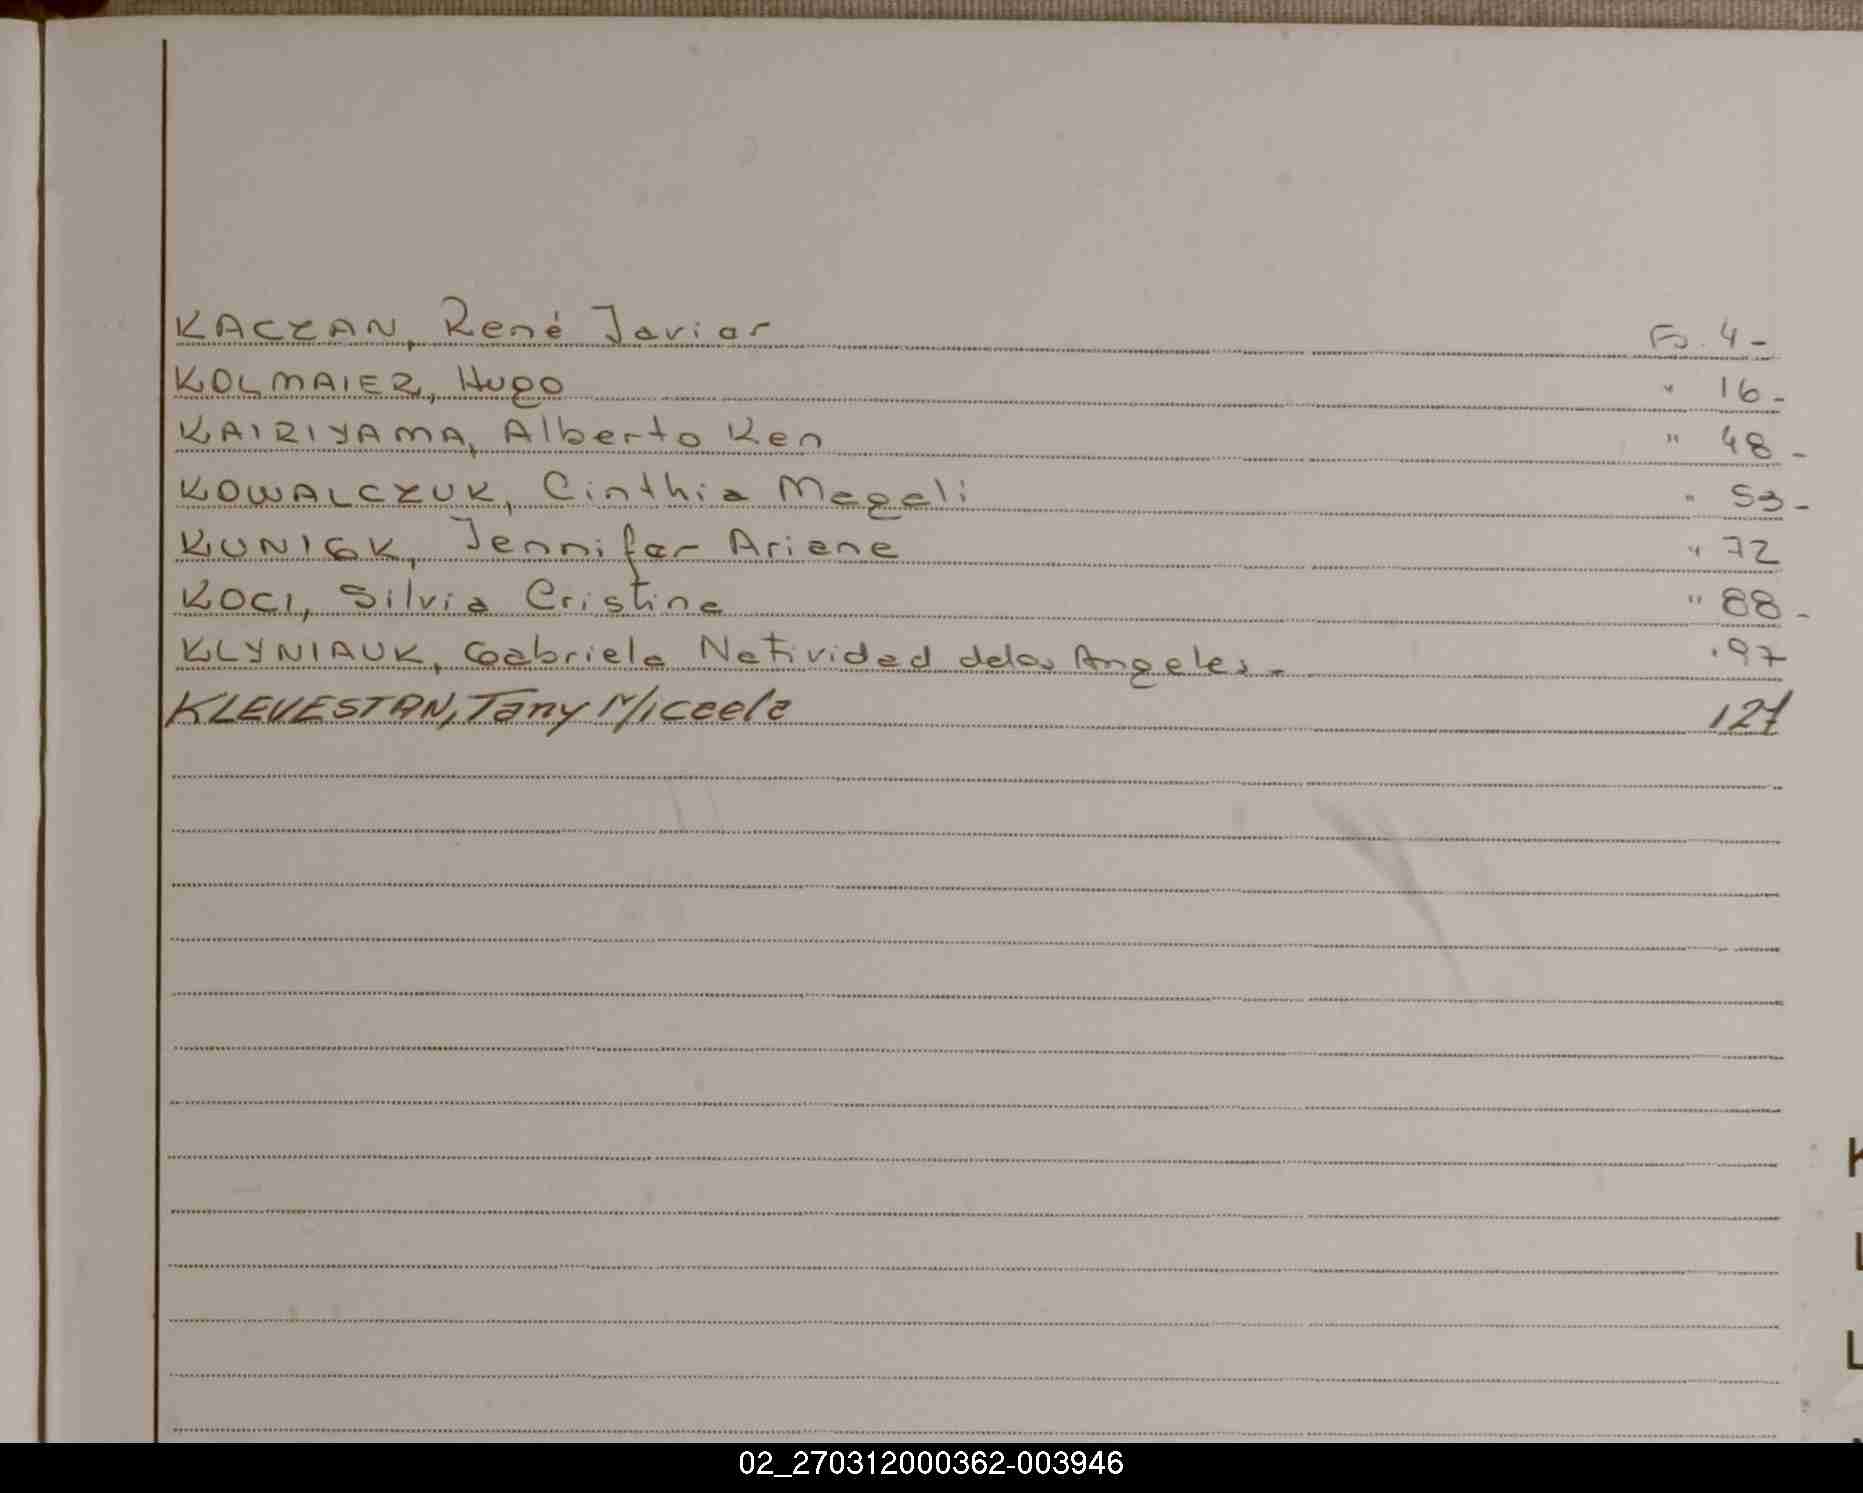 KACZAN, René Javier Fo. 4-
KOLMAIER, Hugo " 16-
KAIRIYAMA, Alberto Ken " 48-
KOWALCZUK, Cinthia Magali " 53-
KUNIGK, Jennifer Ariane " 72
KOCI, Silvia Cristina " 88-
KLYNIAUK, Gabriela Natividad delos Angeles- " 97
KLEVESTAN, Tany Micaela 127
K
L
02_270312000362-003946